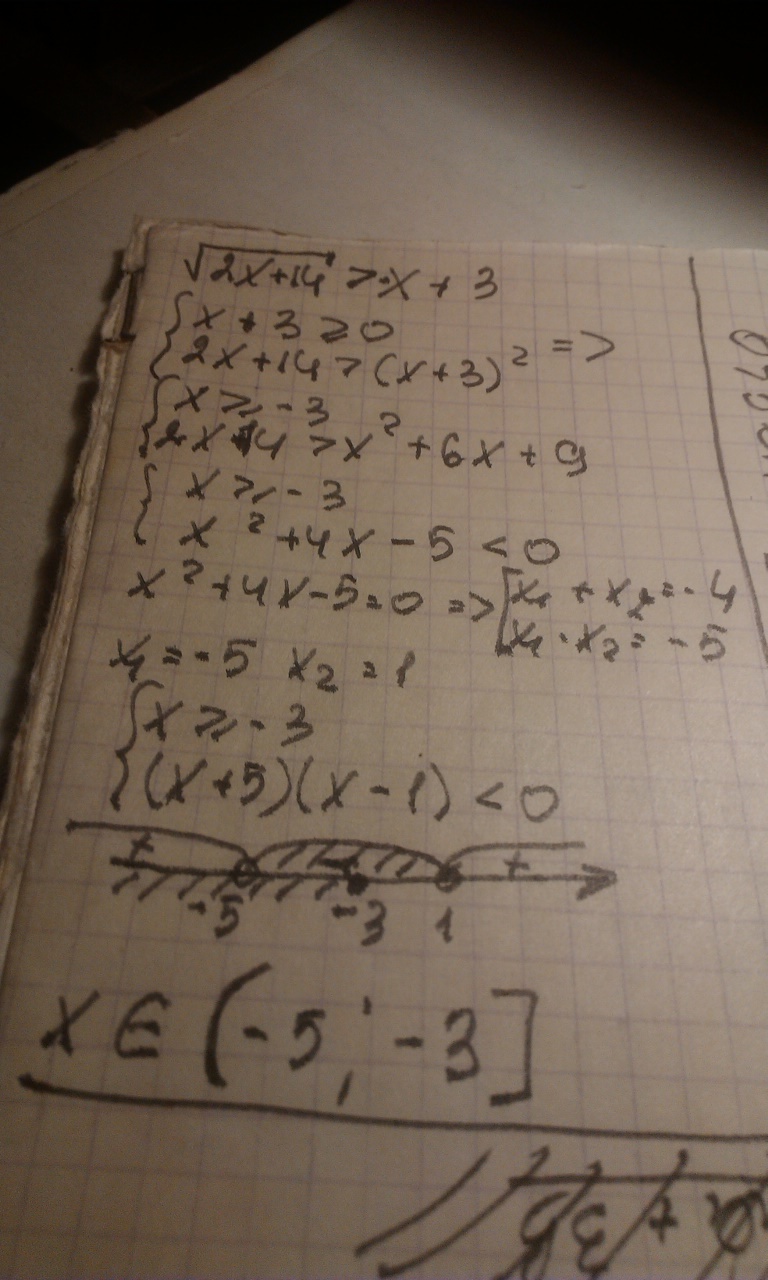 √(2x+14) > x + 3
{ x + 3 ≥ 0
2x+14 > (x+3)² =>
{ x ≥ -3
2x+14 > x² + 6x + 9
{ x ≥ -3
x² + 4x - 5 < 0
x² + 4x - 5 = 0 => [ x₁ + x₂ = -4
x₁ · x₂ = -5
x₁ = -5 x₂ = 1
{ x ≥ -3
(x+5)(x-1) < 0
+ - +
-5 -3 1
x ∈ (-5; -3]